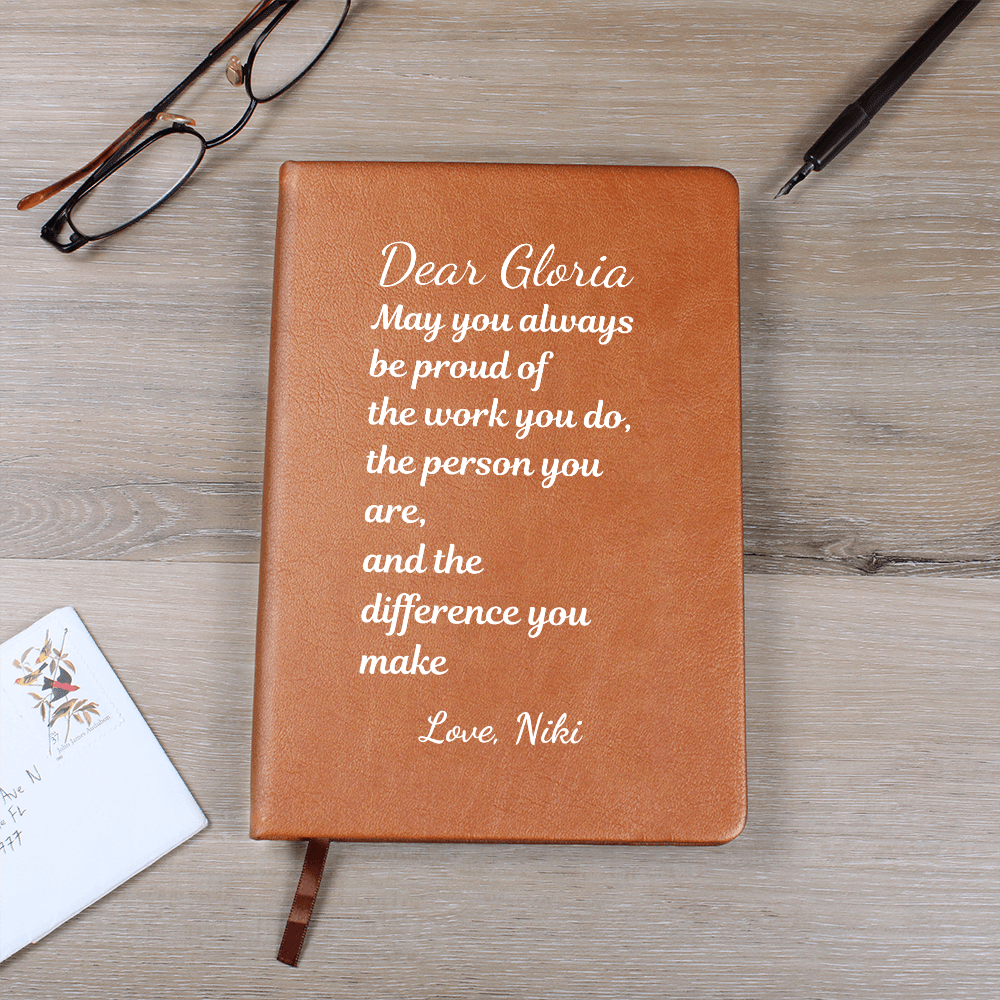 Dear Gloria
May you always
be proud of
the work you do,
the person you
are,
and the
difference you
make
Love, Niki
John James Audubon
Ave N
FL
977